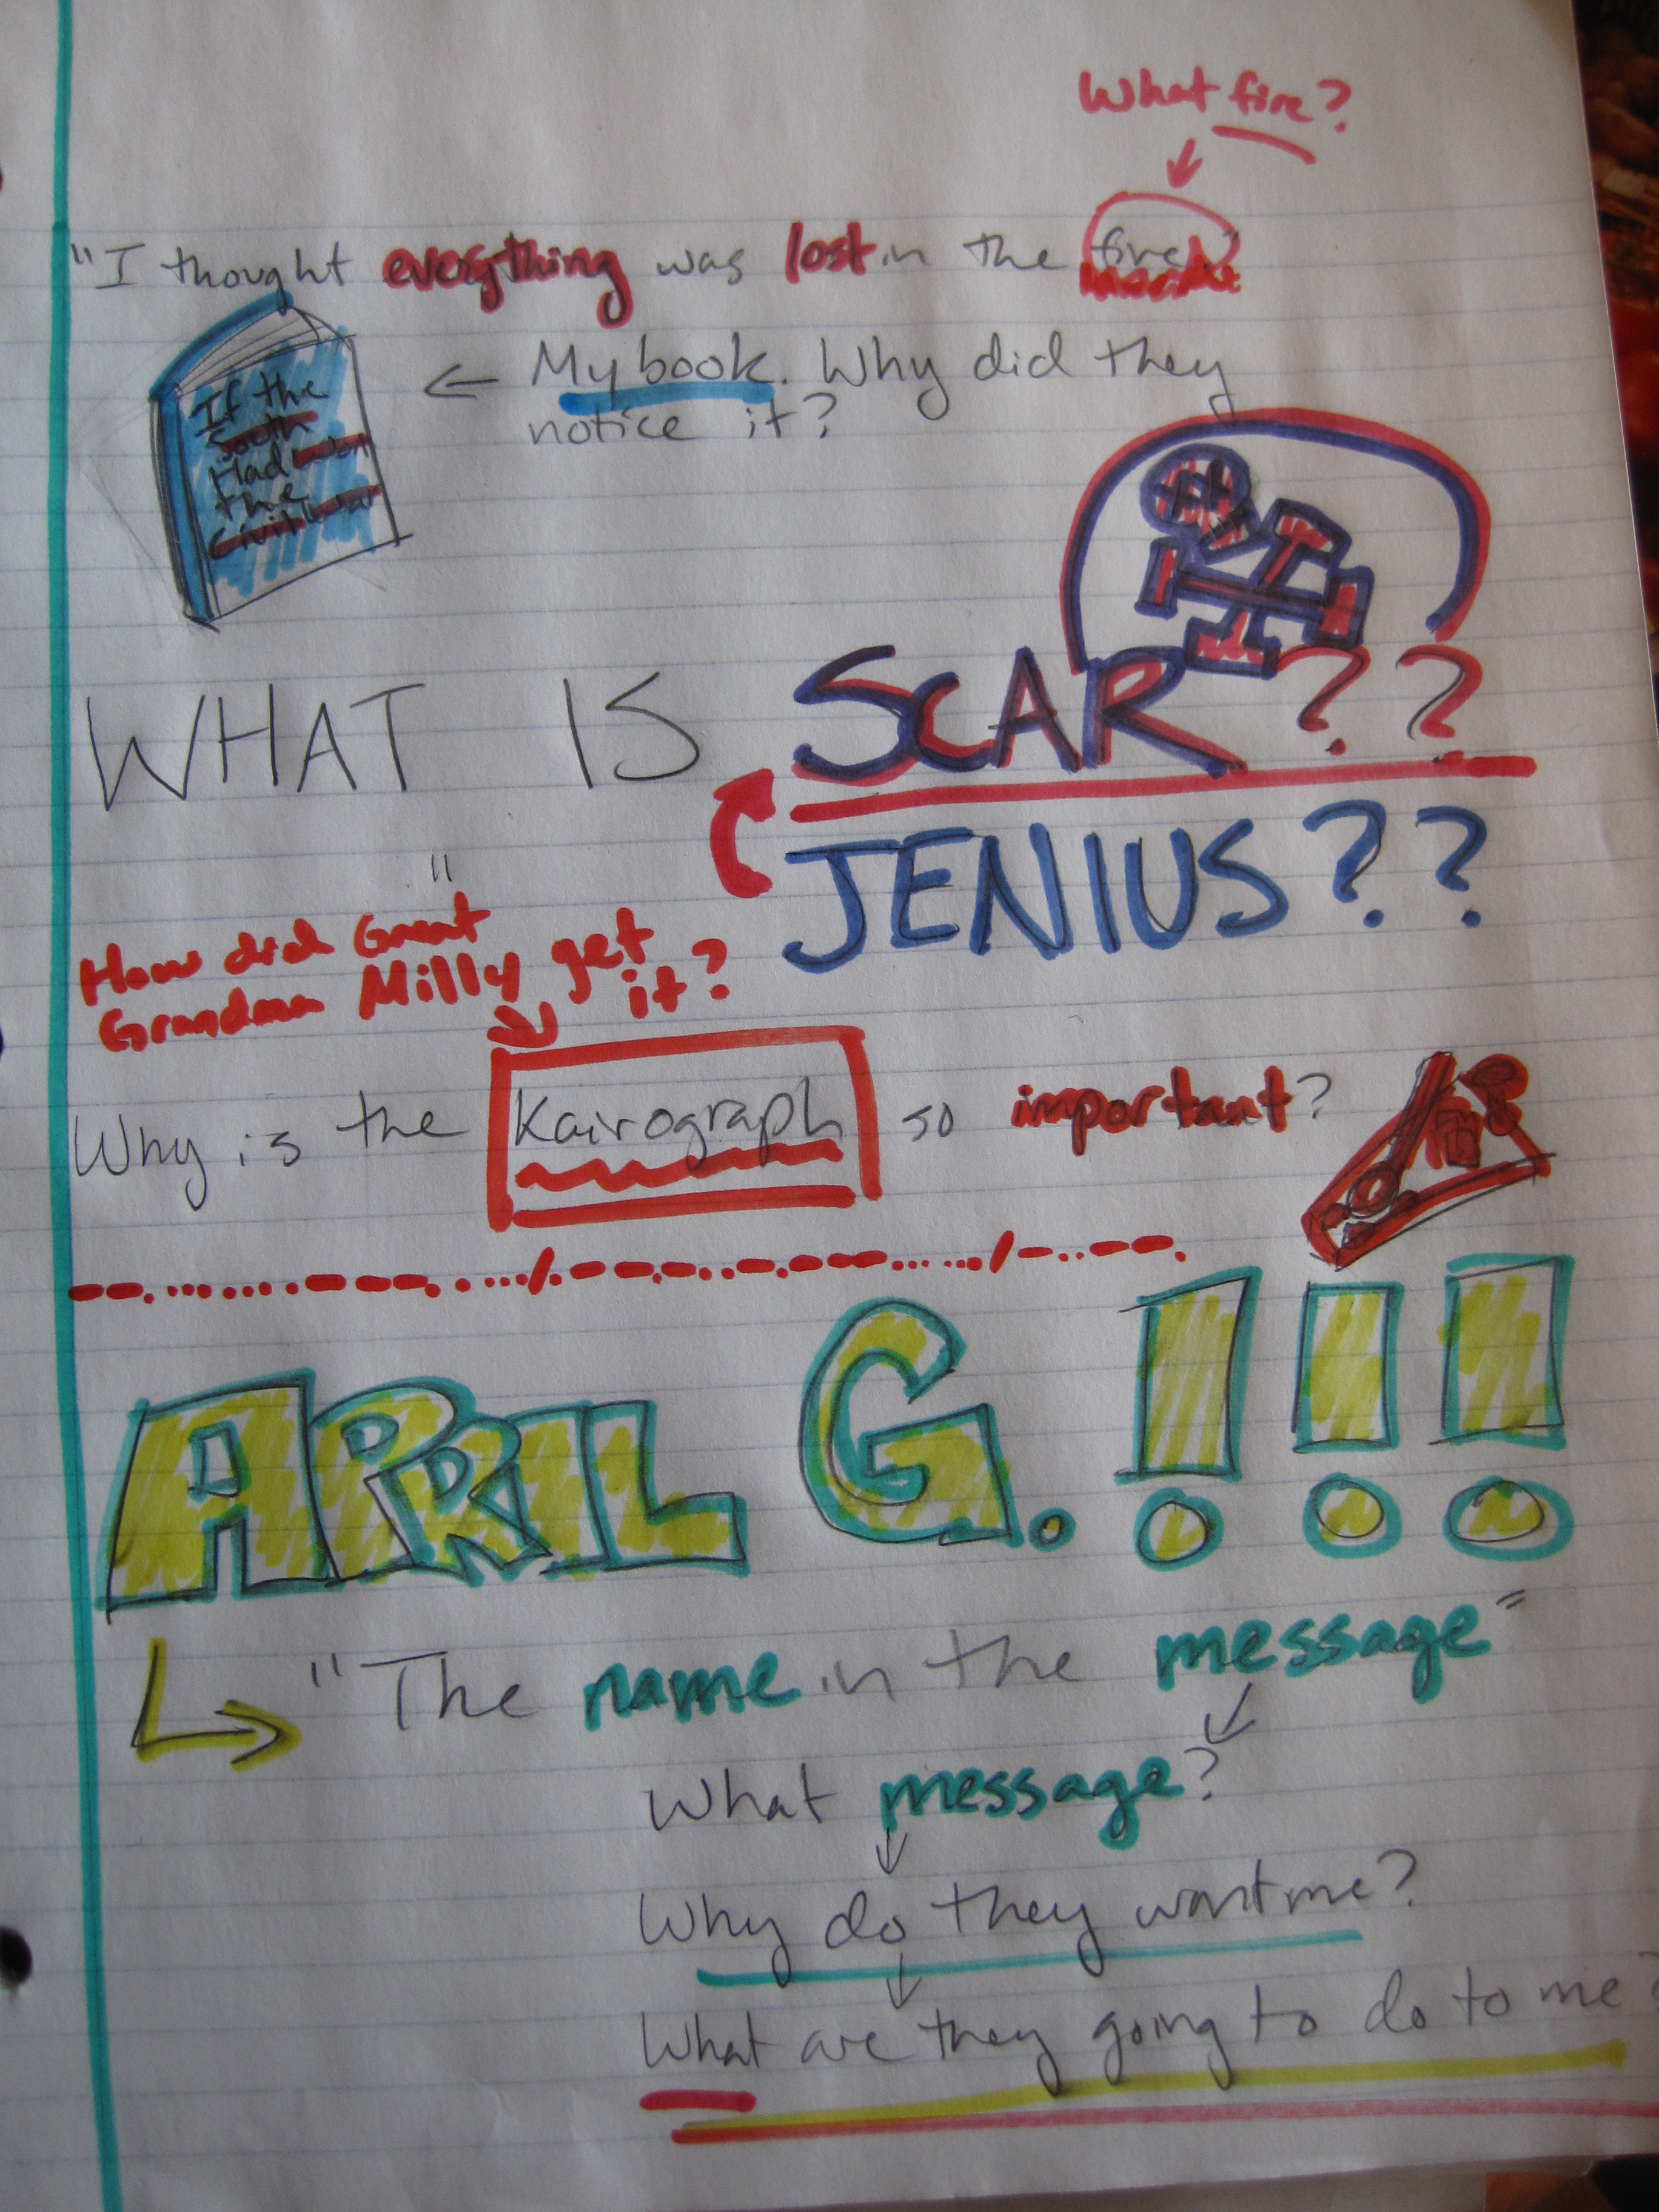 What fire?
"I thought everything was lost in the fire"
If the
South
Had won
the
Civil War
← My book. Why did they
notice it?
WHAT IS SCAR??
JENIUS??
"
How did Great
Grandma Milly get
it?
Why is the Kairograph so important?
APRIL G.!!!
"The name in the message"
What message?
Why do they want me?
What are they going to do to me?